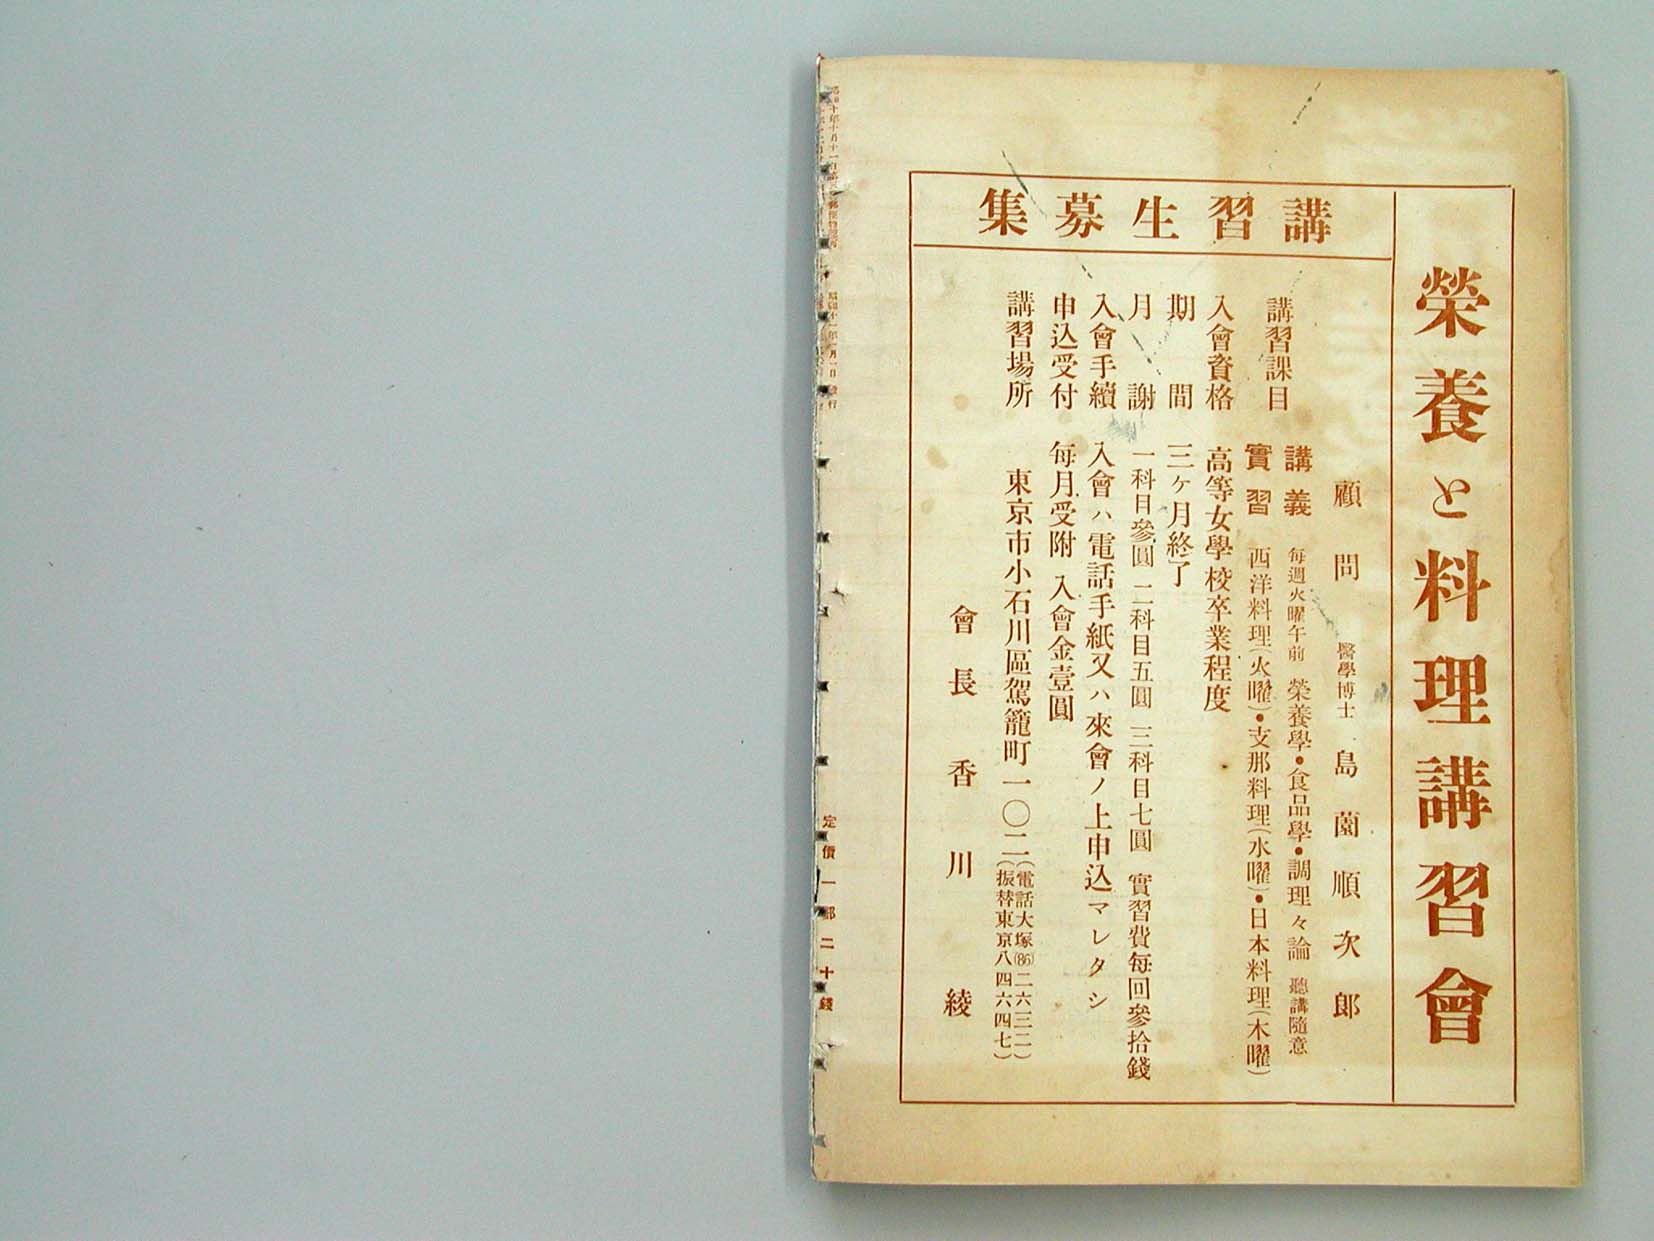 榮養と料理講習會
講習生募集
顧問 醫學博士 島薗順次郎
講習課目
講義 每週火曜午前 榮養學・食品學・調理々論 聽講隨意
實習 西洋料理(火曜)・支那料理(水曜)・日本料理(木曜)
入會資格 高等女學校卒業程度
期間 三ヶ月終了
月謝 一科目參圓 二科目五圓 三科目七圓 實習費每回參拾錢
入會手續 入會ハ電話手紙又ハ來會ノ上申込マレタシ
申込受付 每月受附 入會金壹圓
講習場所 東京市小石川區駕籠町一〇二(電話大塚(86)二六三二)
(振替東京八四六四七)
會長 香川綾
昭和十一年一月一日發行
定價一部二十錢